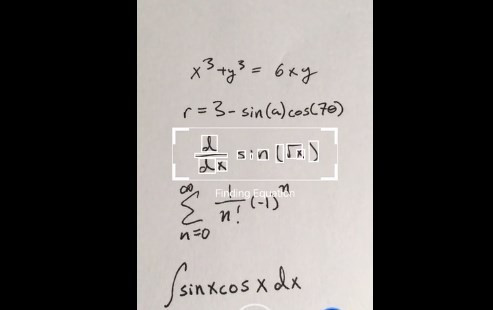 x³+y³ = 6xy
r = 3 - sin(a)cos(7θ)
d/dx sin(√x)
Finding Equation
∞
∑ 1/n! (-1)ⁿ
n=0
∫sinxcosxdx